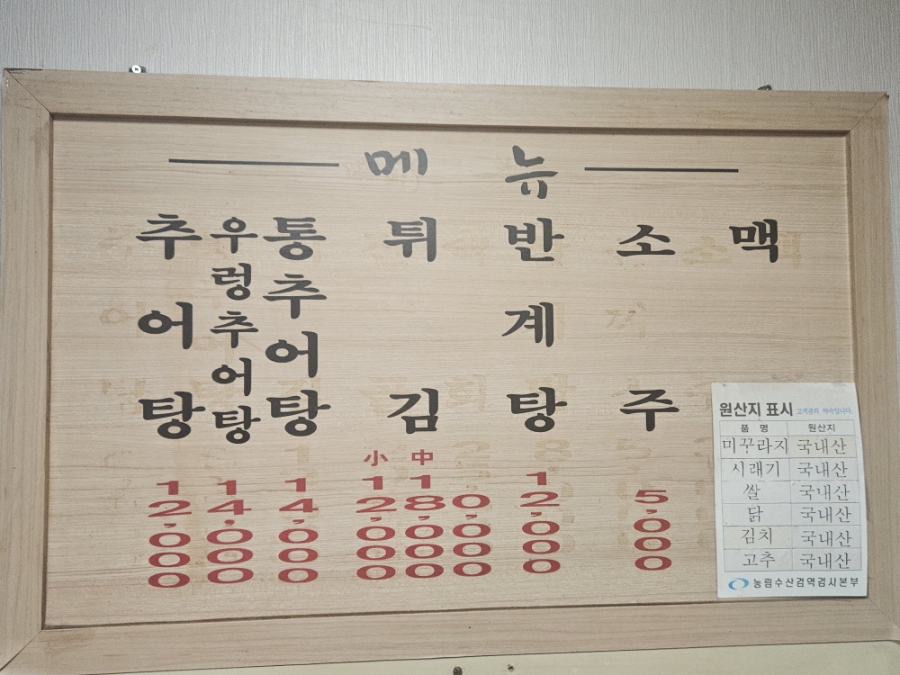 메뉴
추어탕
12,000
우렁추어탕
14,000
통추어탕
14,000
튀김
小
12,000
中
18,000
0,000
반계탕
12,000
소주
5,000
맥
원산지 표시
품 명 원산지
미꾸라지 국내산
시래기 국내산
쌀 국내산
닭 국내산
김치 국내산
고추 국내산
농림수산검역검사본부